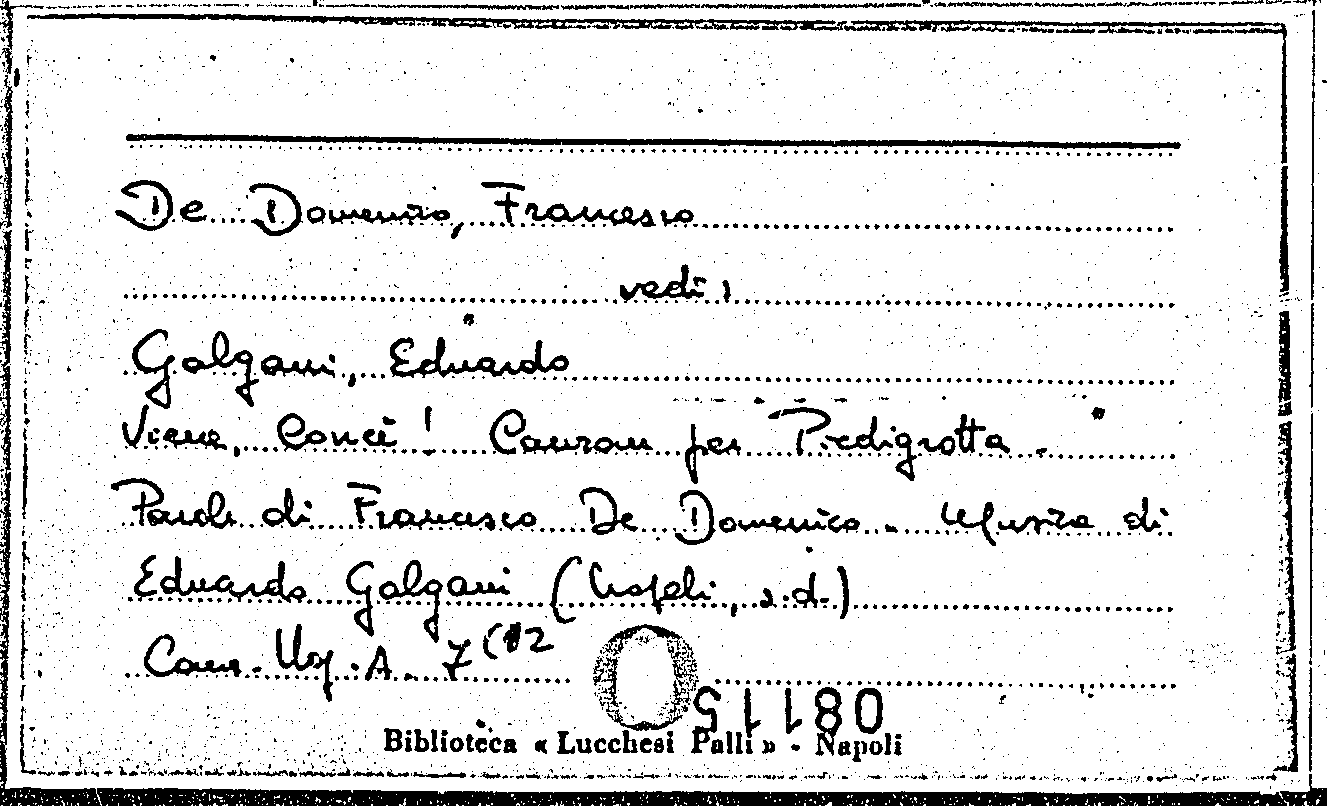 De Domenico, Francesco
vedi:
Galgani, Eduardo
Viene, Concè! Canzone per Piedigrotta.
Parole di Francesco De Domenico. Musica di
Eduardo Galgani (Napoli, s.d.)
Canz. Nap. A. 7(12
08115
Biblioteca « Lucchesi Palli » - Napoli